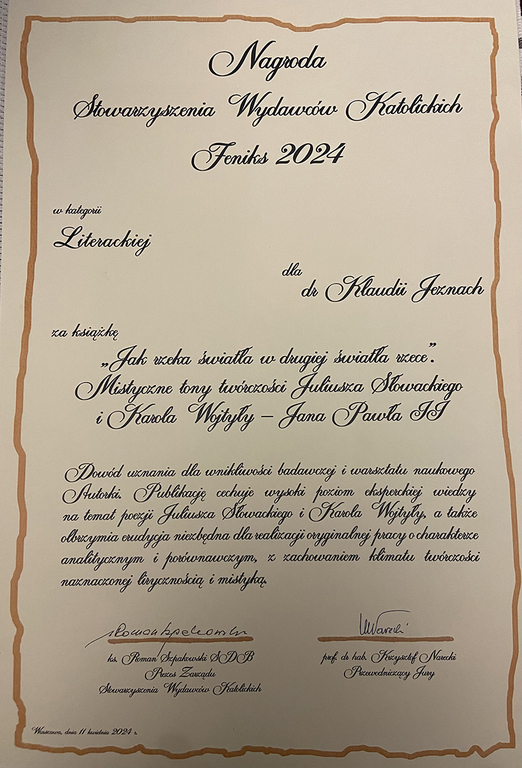 Nagroda
Stowarzyszenia Wydawców Katolickich
Feniks 2024
w kategorii
Literackiej
dla
dr Klaudii Jeznach
za książkę
„Jak rzeka światła w drugiej światła rzece”.
Mistyczne tony twórczości Juliusza Słowackiego
i Karola Wojtyły – Jana Pawła II
Dowód uznania dla wnikliwości badawczej i warsztatu naukowego
Autorki. Publikację cechuje wysoki poziom eksperckiej wiedzy
na temat poezji Juliusza Słowackiego i Karola Wojtyły, a także
olbrzymia erudycja niezbędna dla realizacji oryginalnej pracy o charakterze
analitycznym i porównawczym, z zachowaniem klimatu twórczości
naznaczonej lirycznością i mistyką.
ks. Roman Szpakowski SDB
Prezes Zarządu
Stowarzyszenia Wydawców Katolickich
prof. dr hab. Krzysztof Narecki
Przewodniczący Jury
Warszawa, dnia 11 kwietnia 2024 r.